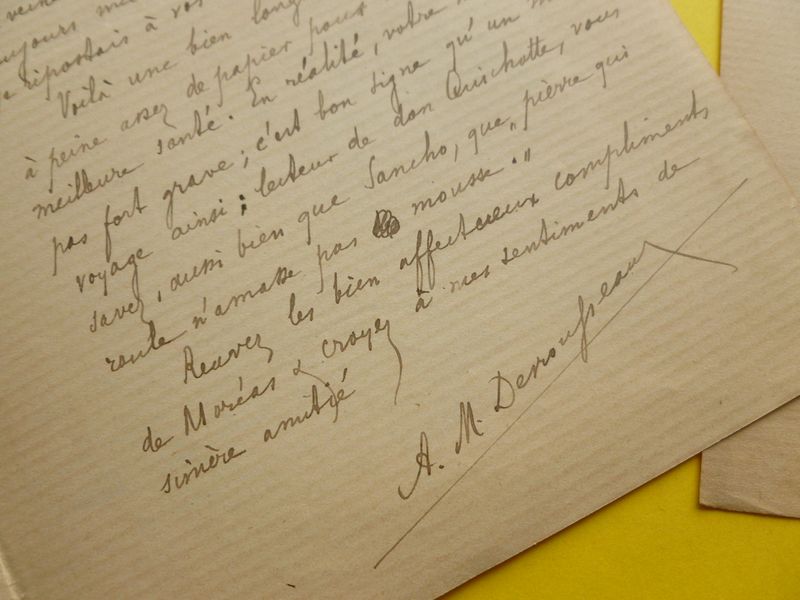 veine
toujours me
je ripostais à vos
Voilà une bien long
à peine assez de papier pour
meilleure santé. En réalité, votre
pas fort grave; c'est bon signe qu'un m
voyage ainsi; lecteur de don Quichotte, vous
savez, aussi bien que Sancho, que "pierre qui
roule n'amasse pas mousse."
Recevez les bien affectueux compliments
de Moréas & croyez à mes sentiments de
sincère amitié
A. M. Derousseaux